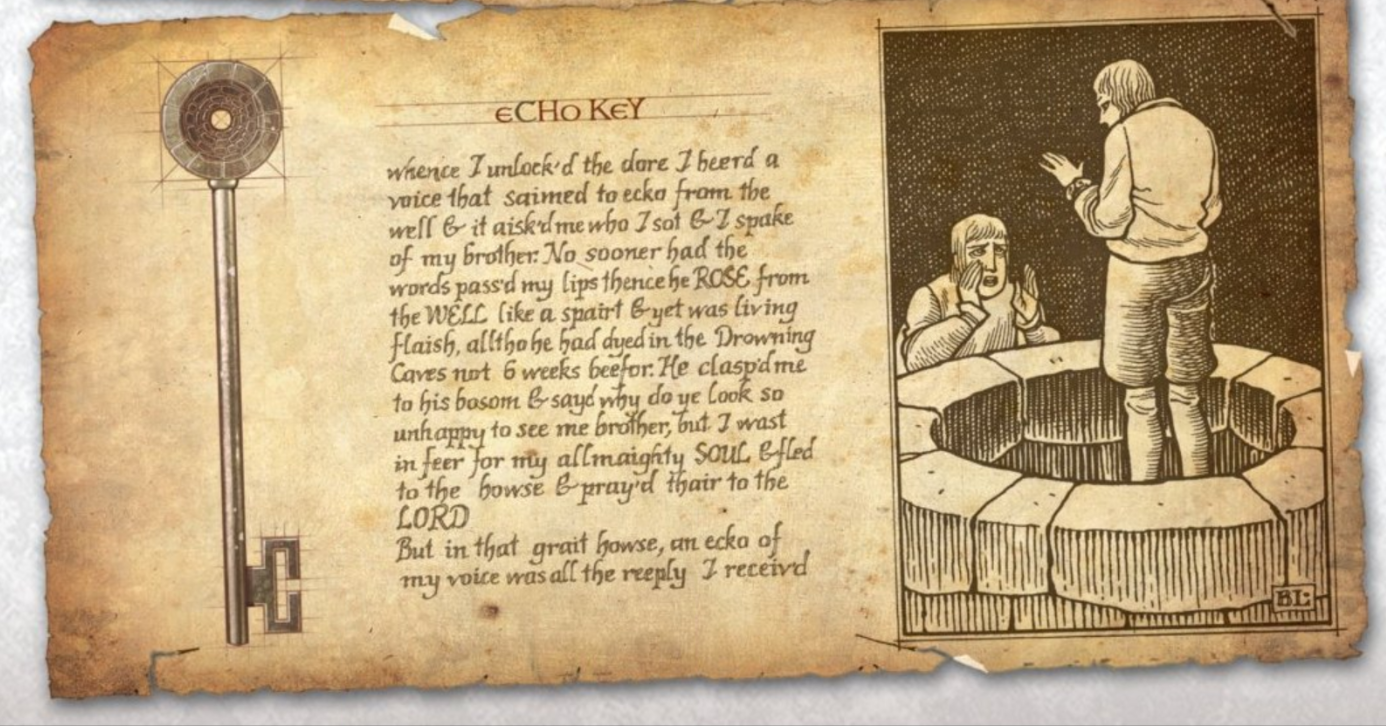 ECHO KEY
whence I unlock'd the dore I heerd a
voice that saimed to ecko from the
well & it aisk'd me who I sot & I spake
of my brother. No sooner had the
words pass'd my lips thence he ROSE from
the WELL like a spairt & yet was living
flaish, alltho he had dyed in the Drowning
Caves not 6 weeks beefor. He clasp'd me
to his bosom & sayd why do ye look so
unhappy to see me brother, but I wast
in feer for my allmaighty SOUL & fled
to the howse & pray'd thair to the
LORD
But in that grait howse, an ecko of
my voice was all the reeply I receiv'd
BL: